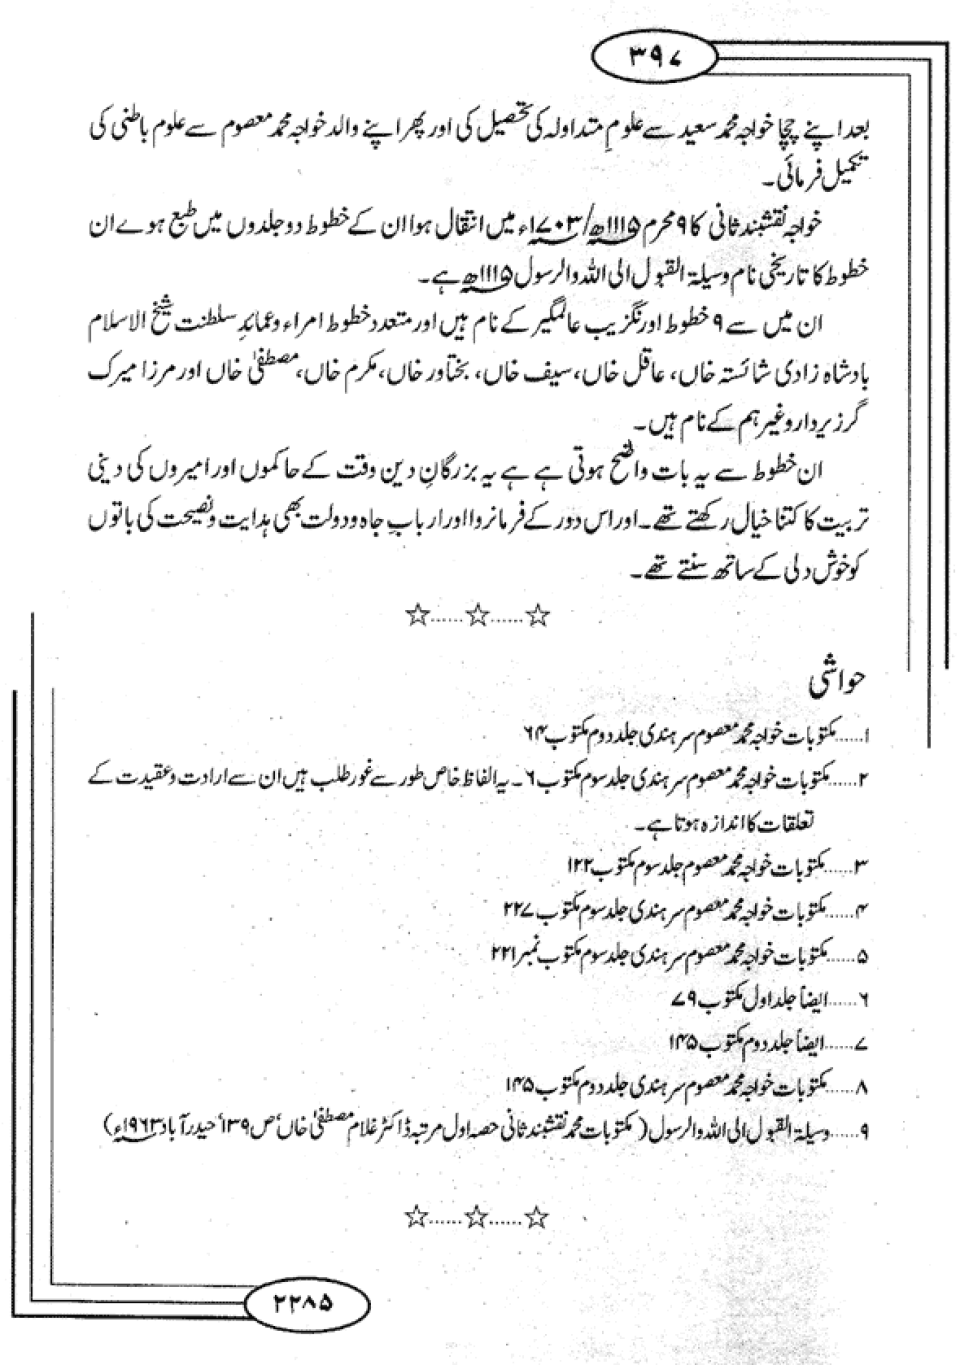 ۳۹۷
بعد اپنے چچا خواجہ محمد سعید سے علومِ متداولہ کی تحصیل کی اور پھر اپنے والد خواجہ محمد معصوم سے علوم باطنی کی
تکمیل فرمائی۔
خواجہ نقشبند ثانی کا ۹ محرم ۱۱۱۵ھ/۱۷۰۳ء میں انتقال ہوا ان کے خطوط دو جلدوں میں طبع ہوے ان
خطوط کا تاریخی نام وسیلۃ القبول الی اللہ والرسول ۱۱۱۵ھ ہے۔
ان میں سے ۹ خطوط اورنگزیب عالمگیر کے نام ہیں اور متعدد خطوط امراء و عمائدِ سلطنت شیخ الاسلام
بادشاہ زادی شائستہ خاں، عاقل خاں، سیف خاں، بختاور خاں، مکرم خاں، مصطفیٰ خاں اور مرزا میرک
گرز بردار وغیرہم کے نام ہیں۔
ان خطوط سے یہ بات واضح ہوتی ہے ہے یہ بزرگانِ دین وقت کے حاکموں اور امیروں کی دینی
تربیت کا کتنا خیال رکھتے تھے۔ اور اس دور کے فرمانروا اور اربابِ جاہ ودولت بھی ہدایت و نصیحت کی باتوں
کو خوش دلی کے ساتھ سنتے تھے۔
☆......☆......☆
حواشی
۱......مکتوبات خواجہ محمد معصوم سرہندی جلد دوم مکتوب ۶۴
۲......مکتوبات خواجہ محمد معصوم سرہندی جلد سوم مکتوب ۶۔ یہ الفاظ خاص طور سے غور طلب ہیں ان سے ارادت و عقیدت کے
تعلقات کا اندازہ ہوتا ہے۔
۳......مکتوبات خواجہ محمد معصوم جلد سوم مکتوب ۱۲۲
۴......مکتوبات خواجہ محمد معصوم سرہندی جلد سوم مکتوب ۲۲۷
۵......مکتوبات خواجہ محمد معصوم سرہندی جلد سوم مکتوب نمبر ۲۲۱
۶......ایضاً جلد اول مکتوب ۷۹
۷......ایضاً جلد دوم مکتوب ۱۴۵
۸......مکتوبات خواجہ محمد معصوم سرہندی جلد دوم مکتوب ۱۴۵
۹......وسیلۃ القبول الی اللہ والرسول (مکتوبات محمد نقشبند ثانی حصہ اول مرتبہ ڈاکٹر غلام مصطفیٰ خاں‘ ص ۱۳۹‘ حیدرآباد ۱۹۶۳ء)
☆......☆......☆
۲۲۸۵